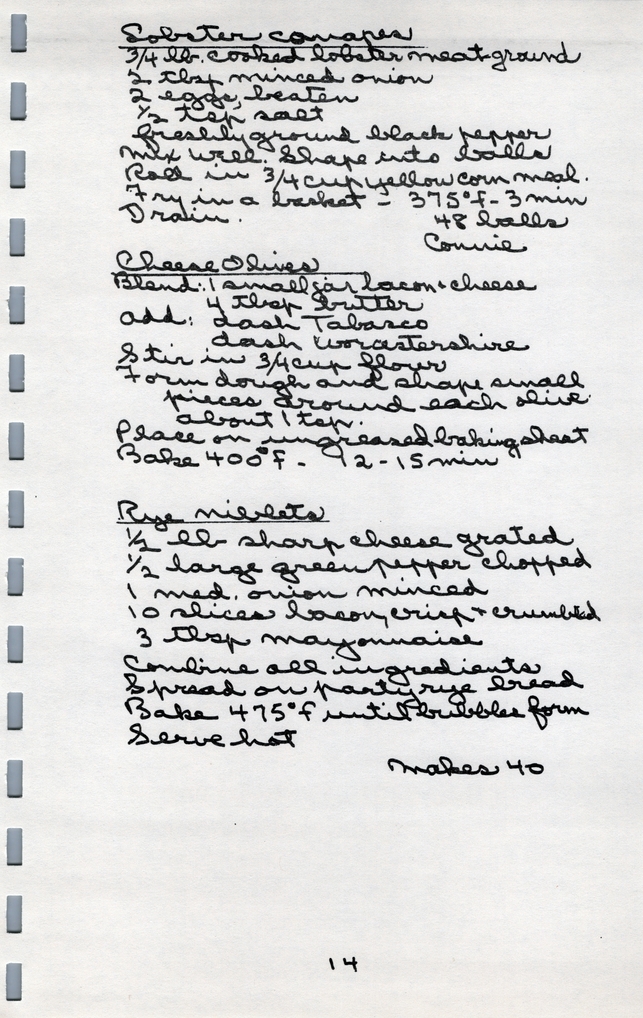 Lobster canapes
3/4 lb. cooked lobster meat-ground
2 tbsp minced onion
2 eggs, beaten
1/2 tsp salt
freshly ground black pepper
Mix well. Shape into balls
Roll in 3/4 cup yellow corn meal.
Fry in a basket - 375°F - 3 min
Drain. 48 balls
Connie
Cheese Olives
Blend: 1 small jar bacon + cheese
4 tbsp butter
add: dash Tabasco
dash Worcestershire
Stir in 3/4 cup flour
Form dough and shape small
pieces around each olive
about 1 tsp.
Place on ungreased baking sheet
Bake 400°F - 12-15 min
Rye niblets
1/2 lb sharp cheese grated
1/2 large green pepper chopped
1 med. onion minced
10 slices bacon, crisp + crumbled
3 tbsp mayonnaise
Combine all ingredients
Spread on party rye bread
Bake 475°F until bubbles form
Serve hot
makes 40
14